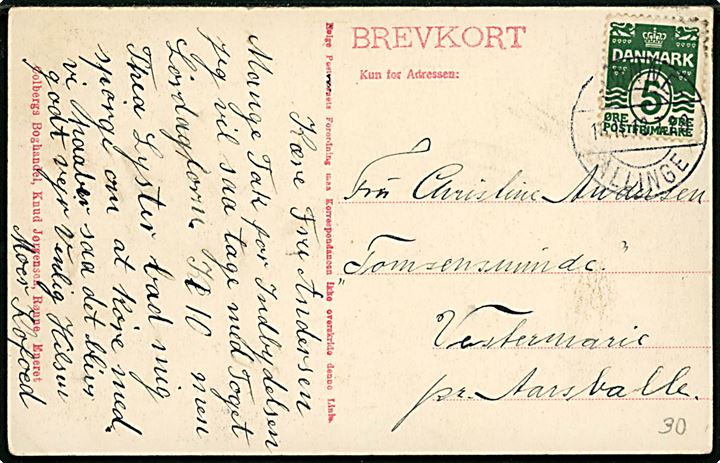 BREVKORT
Kun for Adressen:
DANMARK
5
ØRE ØRE
POSTFRIMÆRKE
ALLINGE
Fru Christine Andersen
"Tomsensminde."
Vestermarie
pr. Aarsballe.
30
Kære Fru Andersen
Mange Tak for Indbydelsen
jeg vil saa tage med Toget
Lørdagform. Kl 10 men
Thea Lyster bad mig
spørge om at køre med.
vi haaber saa det bliver
godt vejr Venlig Hilsen
Moer Kofoed
Ifølge Postvæsenets Forordning maa Korrespondancen ikke overskride denne Linie.
Colbergs Boghandel, Knud Jørgensen, Rønne. Eneret